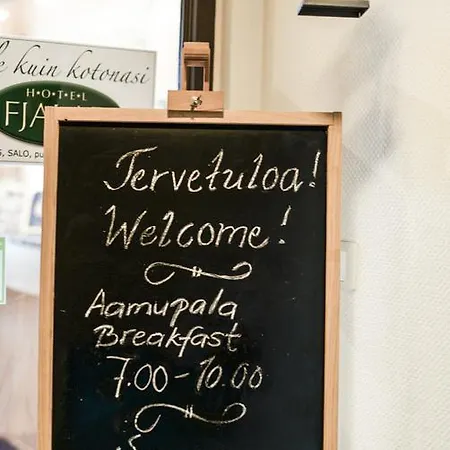 kuin kotonasi
HOTEL
SALO,
Tervetuloa!
Welcome!
Aamupala
Breakfast
7.00-10.00